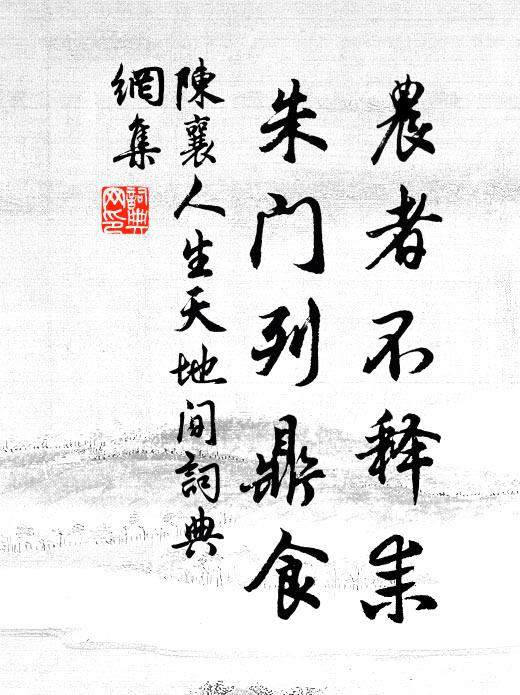 農者不释耒
朱门列鼎食
陳襄人生天地间詞典
網集
詞典
网印